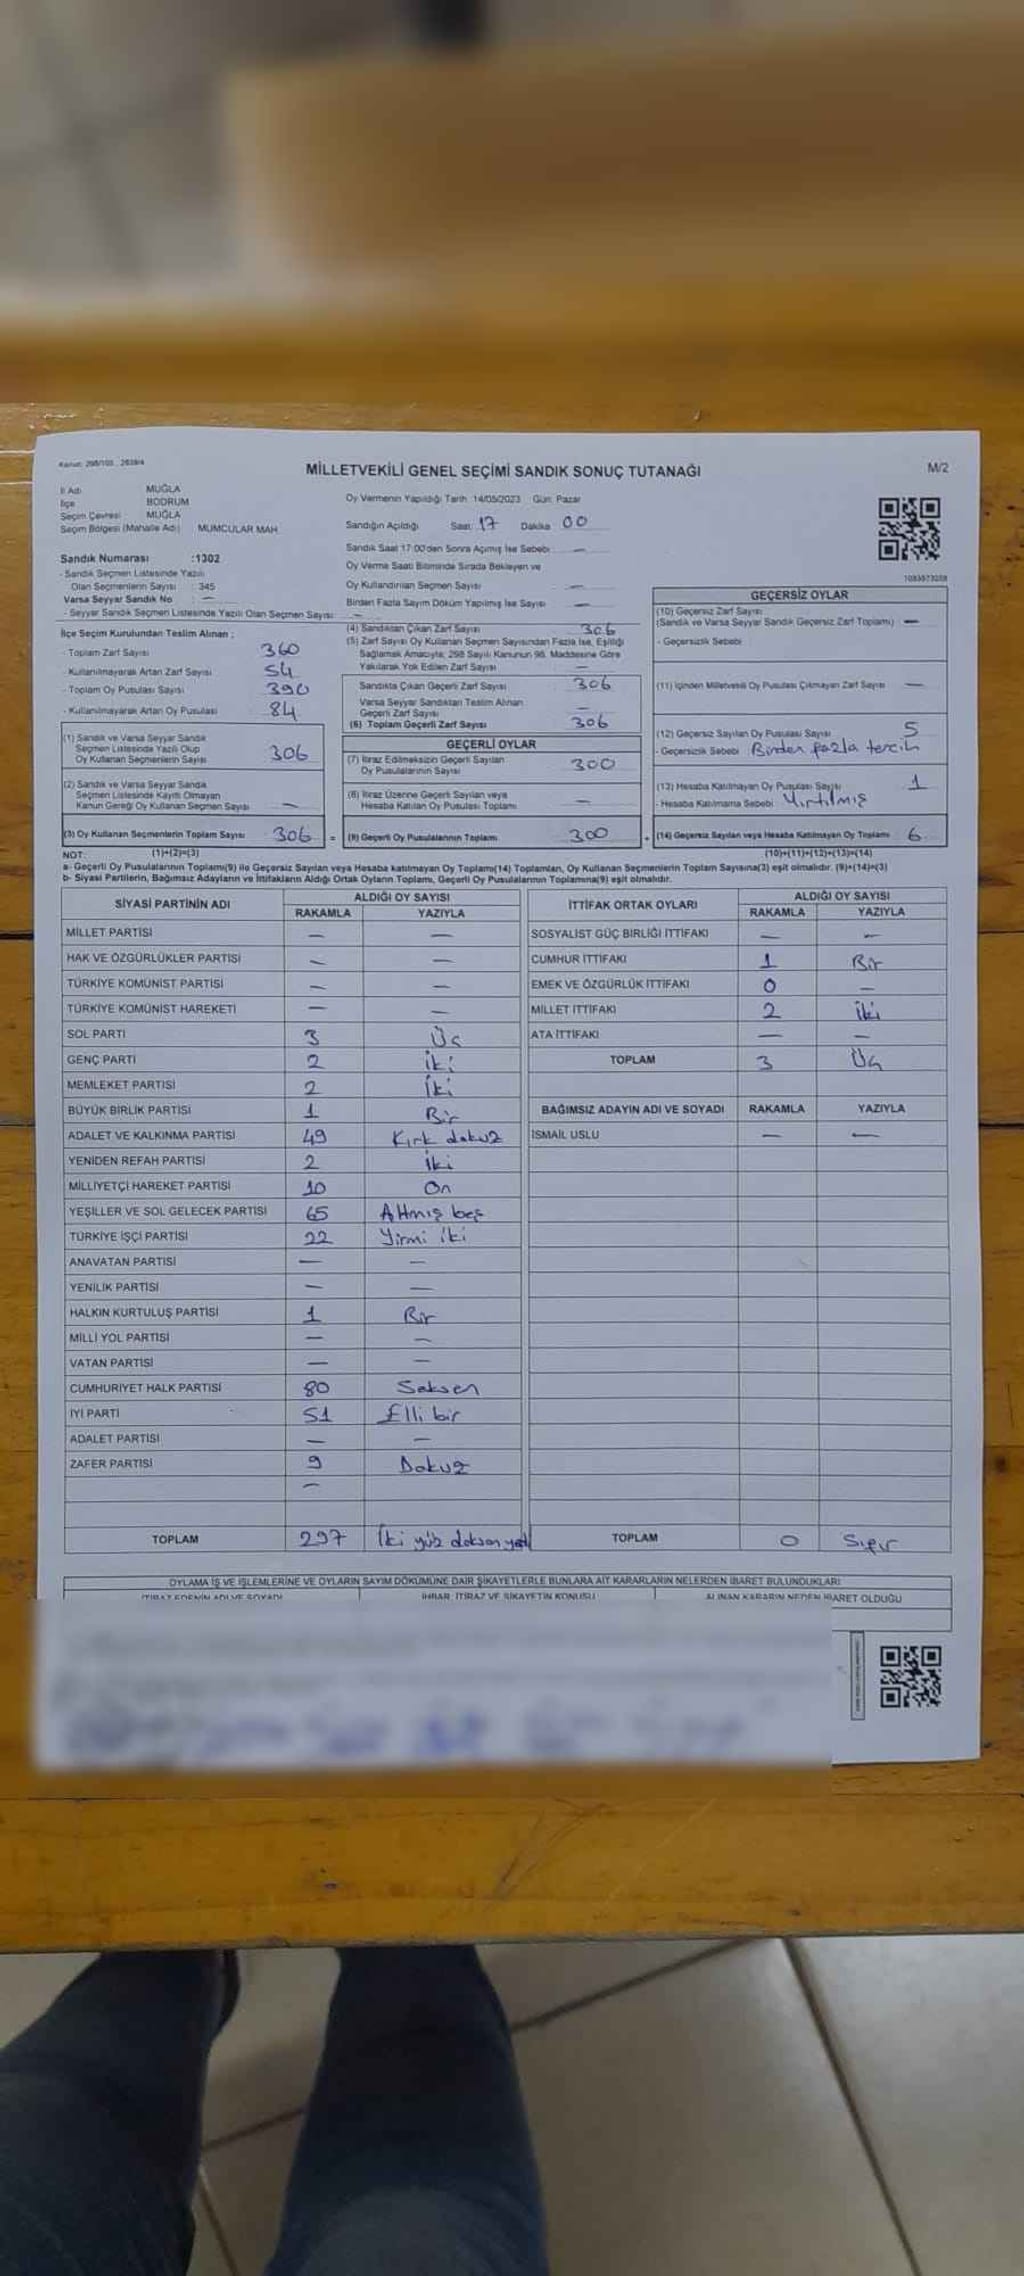 Kanun: 298/105, 2839/4
MİLLETVEKİLİ GENEL SEÇİMİ SANDIK SONUÇ TUTANAĞI
M/2
İl Adı MUĞLA
İlçe BODRUM
Seçim Çevresi MUĞLA
Seçim Bölgesi (Mahalle Adı) MUMCULAR MAH.
Oy Vermenin Yapıldığı Tarih :14/05/2023 Gün: Pazar
Sandığın Açıldığı Saat: 17 Dakika 00
Sandık Saat 17:00'den Sonra Açımış İse Sebebi —
Oy Verme Saati Bitiminde Sırada Bekleyen ve
Oy Kullandırılan Seçmen Sayısı —
Birden Fazla Sayım Döküm Yapılmış İse Sayısı —
Sandık Numarası :1302
- Sandık Seçmen Listesinde Yazılı
Olan Seçmenlerin Sayısı : 345
Varsa Seyyar Sandık No : —
- Seyyar Sandık Seçmen Listesinde Yazılı Olan Seçmen Sayısı: —
İlçe Seçim Kurulundan Teslim Alınan ;
- Toplam Zarf Sayısı 360
- Kullanılmayarak Artan Zarf Sayısı 54
- Toplam Oy Pusulası Sayısı 390
- Kullanılmayarak Artan Oy Pusulası 84
(1) Sandık ve Varsa Seyyar Sandık
Seçmen Listesinde Yazılı Olup
Oy Kullanan Seçmenlerin Sayısı 306
(2) Sandık ve Varsa Seyyar Sandık
Seçmen Listesinde Kayıtlı Olmayan
Kanun Gereği Oy Kullanan Seçmen Sayısı —
(3) Oy Kullanan Seçmenlerin Toplam Sayısı 306 =
(1)+(2)=(3)
(4) Sandıktan Çıkan Zarf Sayısı 306
(5) Zarf Sayısı Oy Kullanan Seçmen Sayısından Fazla İse, Eşitliği
Sağlamak Amacıyla; 298 Sayılı Kanunun 98. Maddesine Göre
Yakılarak Yok Edilen Zarf Sayısı —
Sandıkta Çıkan Geçerli Zarf Sayısı 306
Varsa Seyyar Sandıktan Teslim Alınan
Geçerli Zarf Sayısı —
(6) Toplam Geçerli Zarf Sayısı 306
GEÇERLİ OYLAR
(7) İtiraz Edilmeksizin Geçerli Sayılan
Oy Pusulalarının Sayısı 300
(8) İtiraz Üzerine Geçerli Sayılan veya
Hesaba Katılan Oy Pusulası Toplamı —
(9) Geçerli Oy Pusulalarının Toplamı 300 +
1083573258
GEÇERSİZ OYLAR
(10) Geçersiz Zarf Sayısı
(Sandık ve Varsa Seyyar Sandık Geçersiz Zarf Toplamı) —
- Geçersizlik Sebebi
(11) İçinden Milletvekili Oy Pusulası Çıkmayan Zarf Sayısı —
(12) Geçersiz Sayılan Oy Pusulası Sayısı 5
- Geçersizlik Sebebi Birden fazla tercih
(13) Hesaba Katılmayan Oy Pusulası Sayısı 1
- Hesaba Katılmama Sebebi Yırtılmış
(14) Geçersiz Sayılan veya Hesaba Katılmayan Oy Toplamı 6
(10)+(11)+(12)+(13)=(14)
NOT:
a- Geçerli Oy Pusulalarının Toplamı(9) ile Geçersiz Sayılan veya Hesaba katılmayan Oy Toplamı(14) Toplamları, Oy Kullanan Seçmenlerin Toplam Sayısına(3) eşit olmalıdır. (9)+(14)=(3)
b- Siyasi Partilerin, Bağımsız Adayların ve İttifakların Aldığı Ortak Oyların Toplamı, Geçerli Oy Pusulalarının Toplamına(9) eşit olmalıdır.
SİYASİ PARTİNİN ADI ALDIĞI OY SAYISI
RAKAMLA YAZIYLA
MİLLET PARTİSİ — —
HAK VE ÖZGÜRLÜKLER PARTİSİ — —
TÜRKİYE KOMÜNİST PARTİSİ — —
TÜRKİYE KOMÜNİST HAREKETİ — —
SOL PARTİ 3 Üç
GENÇ PARTİ 2 İki
MEMLEKET PARTİSİ 2 İki
BÜYÜK BİRLİK PARTİSİ 1 Bir
ADALET VE KALKINMA PARTİSİ 49 Kırk dokuz
YENİDEN REFAH PARTİSİ 2 İki
MİLLİYETÇİ HAREKET PARTİSİ 10 On
YEŞİLLER VE SOL GELECEK PARTİSİ 65 Altmış beş
TÜRKİYE İŞÇİ PARTİSİ 22 Yirmi iki
ANAVATAN PARTİSİ — —
YENİLİK PARTİSİ — —
HALKIN KURTULUŞ PARTİSİ 1 Bir
MİLLİ YOL PARTİSİ — —
VATAN PARTİSİ — —
CUMHURİYET HALK PARTİSİ 80 Seksen
İYİ PARTİ 51 Elli bir
ADALET PARTİSİ — —
ZAFER PARTİSİ 9 Dokuz
—
TOPLAM 297 İki yüz doksan yedi
İTTİFAK ORTAK OYLARI ALDIĞI OY SAYISI
RAKAMLA YAZIYLA
SOSYALİST GÜÇ BİRLİĞİ İTTİFAKI — —
CUMHUR İTTİFAKI 1 Bir
EMEK VE ÖZGÜRLÜK İTTİFAKI 0 —
MİLLET İTTİFAKI 2 İki
ATA İTTİFAKI — —
TOPLAM 3 Üç
BAĞIMSIZ ADAYIN ADI VE SOYADI RAKAMLA YAZIYLA
İSMAİL USLU — —
TOPLAM 0 Sıfır
OYLAMA İŞ VE İŞLEMLERİNE VE OYLARIN SAYIM DÖKÜMÜNE DAİR ŞİKAYETLERLE BUNLARA AİT KARARLARIN NELERDEN İBARET BULUNDUKLARI
İTİRAZ EDENİN ADI VE SOYADI İHBAR, İTİRAZ VE ŞİKAYETİN KONUSU ALINAN KARARIN NEDEN İBARET OLDUĞU